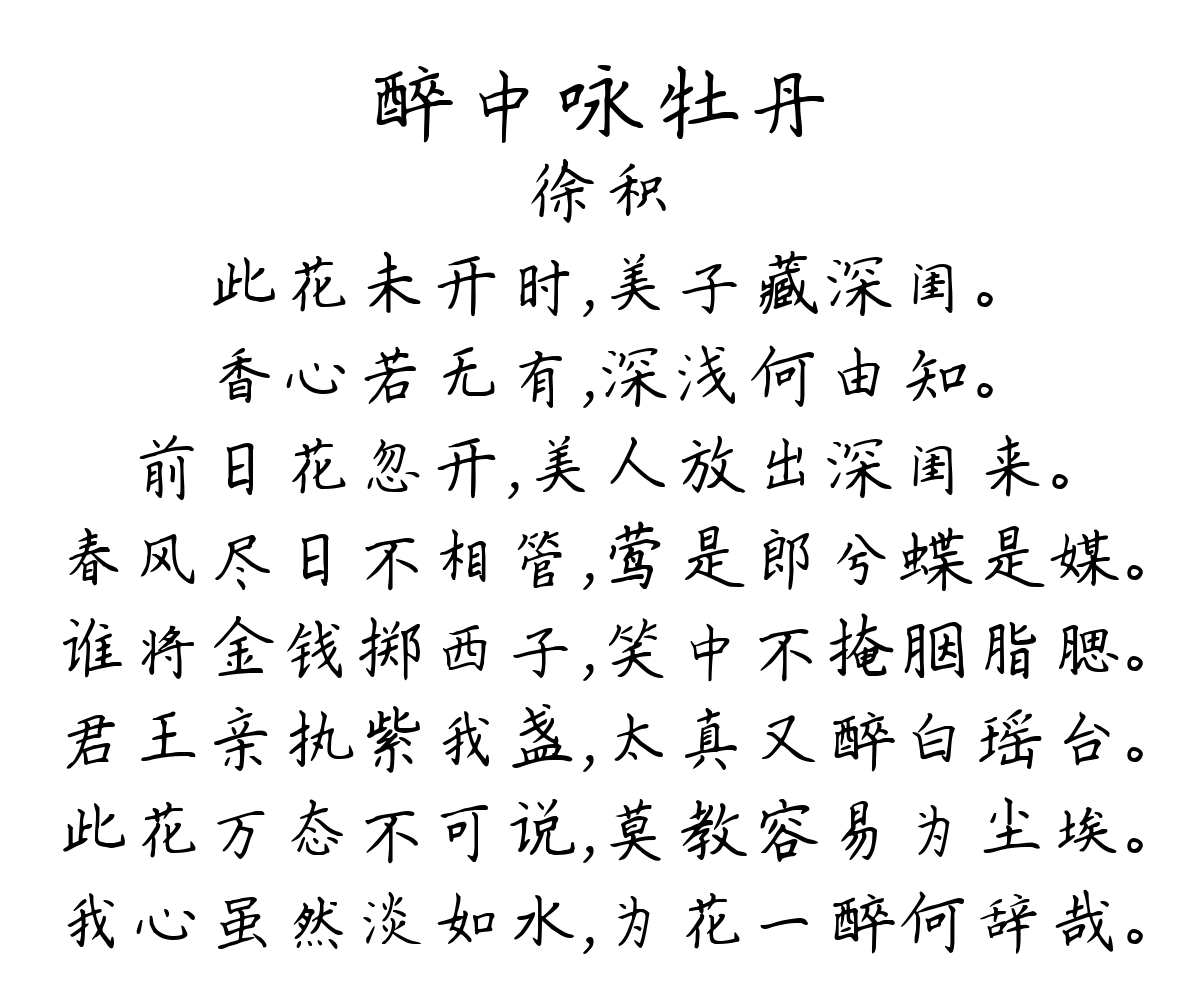 醉中咏牡丹
徐积
此花未开时,美子藏深闺。
香心若无有,深浅何由知。
前日花忽开,美人放出深闺来。
春风尽日不相管,莺是郎兮蝶是媒。
谁将金钱掷西子,笑中不掩胭脂腮。
君王亲执紫我盏,太真又醉白瑶台。
此花万态不可说,莫教容易为尘埃。
我心虽然淡如水,为花一醉何辞哉。